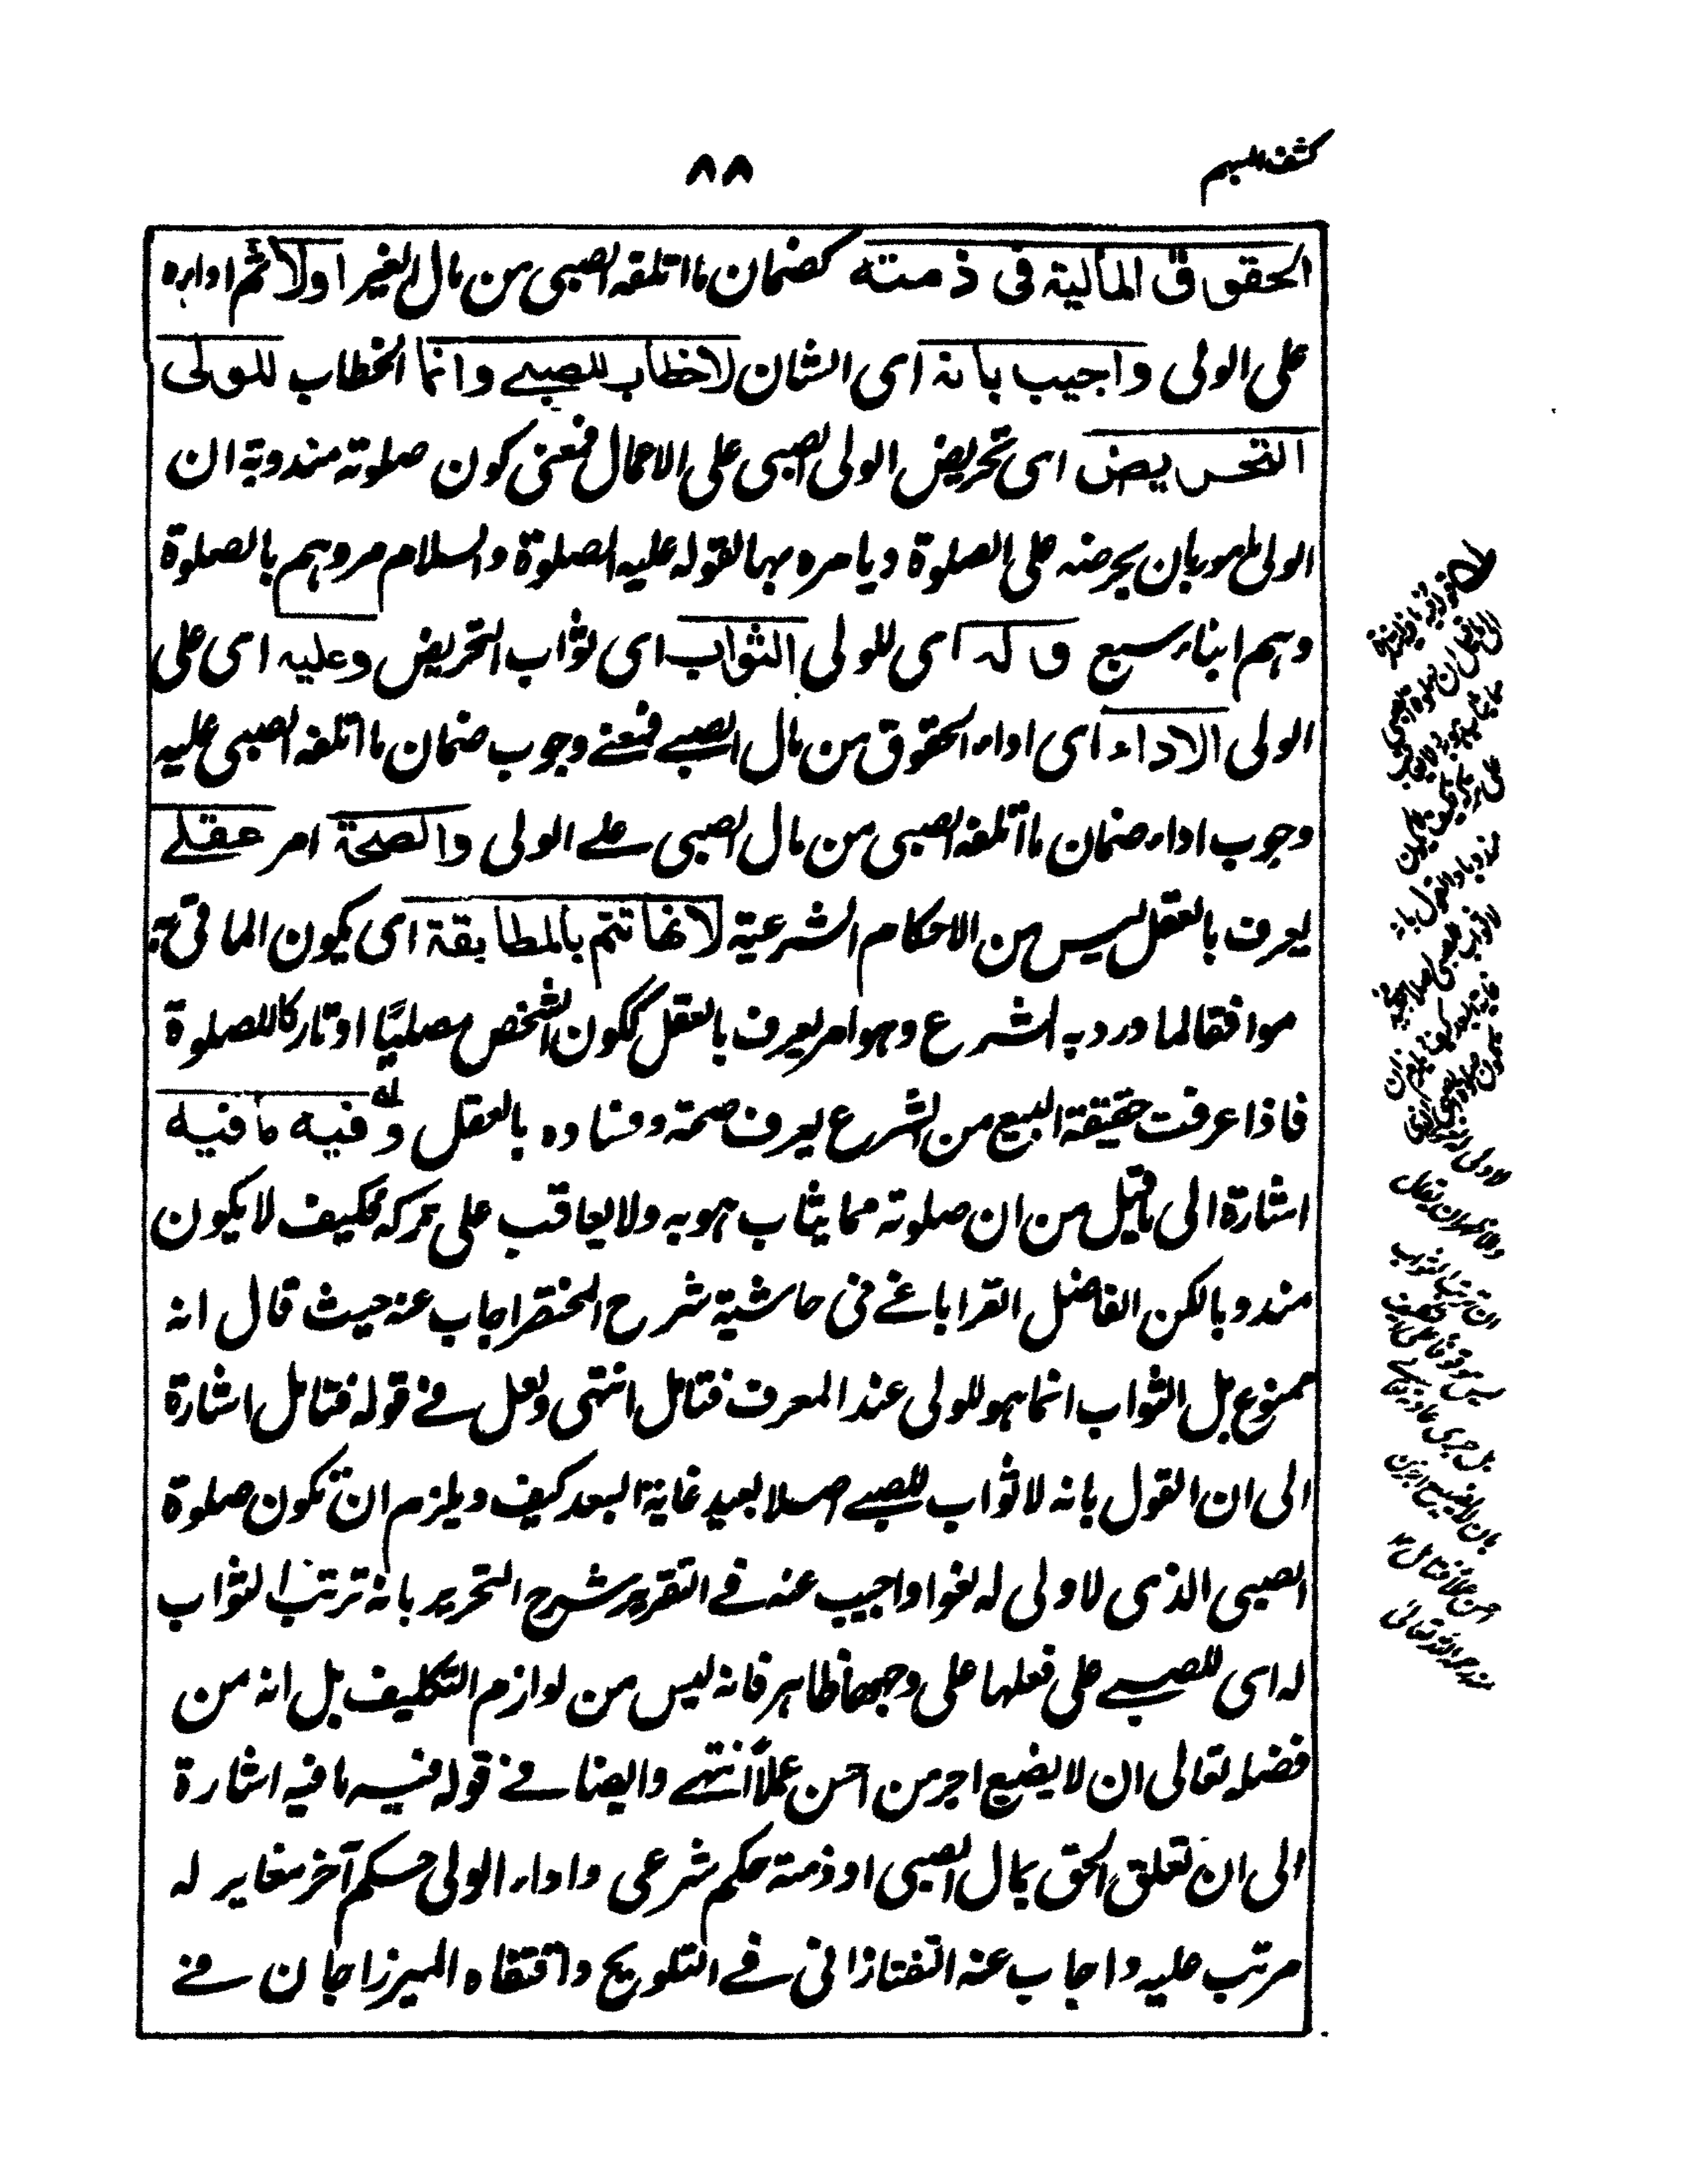 كشف المبهم
٨٨
الحقوق المالية فى ذمته كضمان ما اتلفه الصبى من مال الغير اولا ثم اداءه
على الولى واجيب بانه اى الشان لاخطاب للصبے وانما الخطاب للولى
التحريض اى تحريض الولى الصبى على الاعمال فمعنى كون صلوته مندوبة ان
الولى مامور بان يحرضه على الصلوة ويامره بها لقوله عليه الصلوة والسلام مروهم بالصلوة
وهم ابناء سبع وله اى للولى الثواب اى ثواب التحريض وعليه اى على
الولى الاداء اى اداء الحقوق من مال الصبے فمعنے وجوب ضمان ما اتلفه الصبى عليه
وجوب اداء ضمان ما اتلفه الصبى من مال الصبى علے الولى والصحة امر عقلے
يعرف بالعقل ليس من الاحكام الشرعية لانها تتم بالمطابقة اى يكون الماتى به
موافقا لما ورد به الشرع وهو امر يعرف بالعقل ككون الشخص مصليًا او تاركا للصلوة
فاذا عرفت حقيقة البيع من الشرع يعرف صحته وفساده بالعقل وفيه ما فيه
اشارة الى ما قيل من ان صلوته مما يثاب هو به ولا يعاقب على تركه فكيف لا يكون
مندوبا لكن الفاضل القراباغے فى حاشية شرح المختصر اجاب عنه حيث قال انه
ممنوع بل الثواب انما هو للولى عند المعرف فتامل انتهى ولعل فے قوله فتامل اشارة
الى ان القول بانه لا ثواب للصبے اصلا بعيد غاية البعد كيف ويلزم ان تكون صلوة
الصبى الذى لا ولى له لغوا واجيب عنه فے التقرير شرح التحرير بانه ترتب الثواب
له اى للصبے على فعلها على وجهها ظاهر فانه ليس من لوازم التكليف بل انه من
فضله تعالى ان لا يضيع اجر من احسن عملاً انتهے وايضا فے قوله فيه ما فيه اشارة
الى ان تعلق الحق بمال الصبى او ذمته حكم شرعى واداء الولى حكم آخر مغاير له
مرتب عليه واجاب عنه التفتازانى فے التلويح واقتفاه الميرزاجان فے